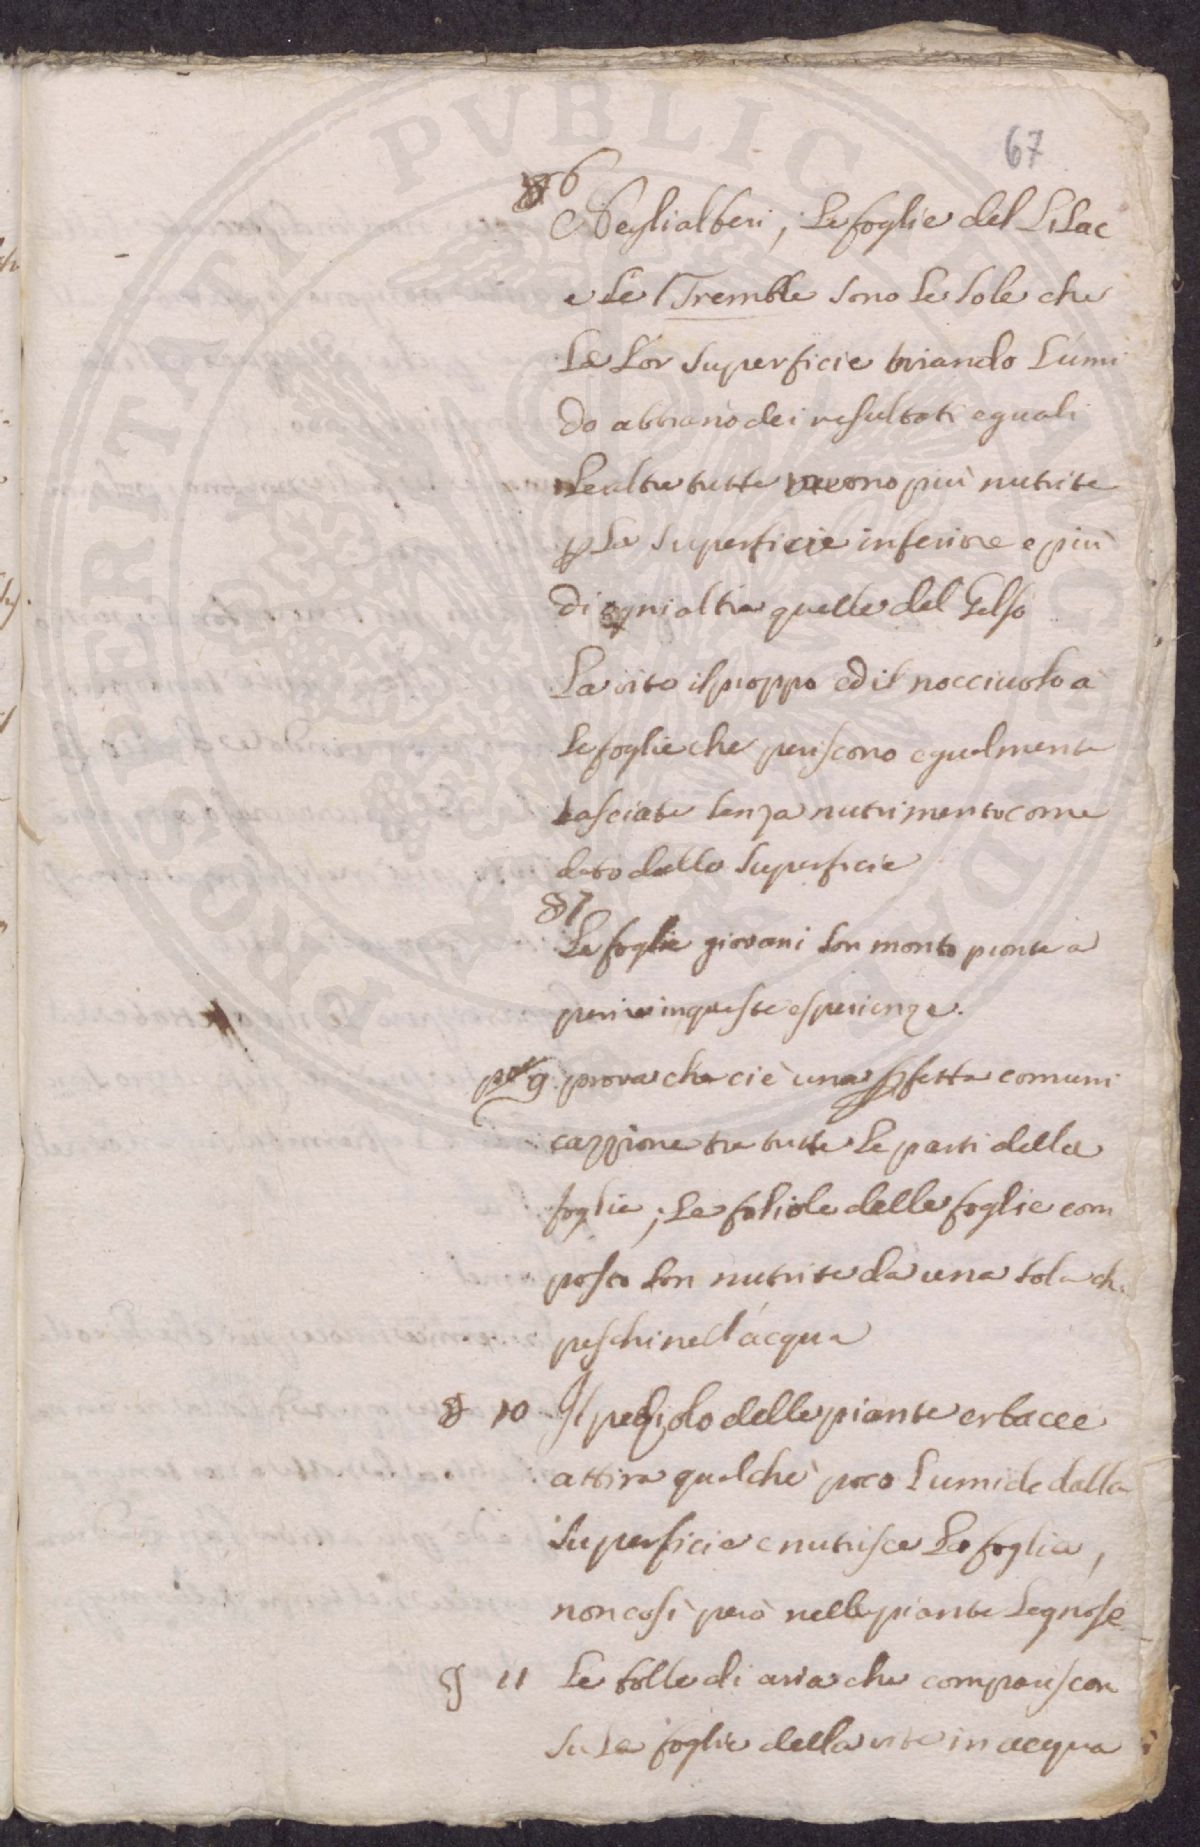 67
§ 6
Neglialberi, Le foglie del Lilac
e Le Tremble sono Le sole che
Le Lor superficie tirando L'umi
do abbiano dei resultati eguali
Le altre tutte vivono più nutrite
p La superficie inferiore e più
di ogni altra quelle del Gelso
La vite il pioppo ed il nocciuolo a
Le foglie che periscono egualmente
Lasciate senza nutrimento come
dato dallo superficie
§ 7
Le foglie giovani son monto pronte a
perire in queste esperienze.
pag 9 prova che ci è una pfetta comuni
cazzione tra tutte Le parti della
foglia; Le foliole delle foglie com
poste son nutrite da una sola ch
peschi nell'acqua
§ 10 Il peziolo delle piante erbacee
attira qualche poco L'umido dalla
superficie e nutrisce La foglia,
non così però nelle piante Legnose
§ 11 Le bolle di aria che compariscon
su Le foglie della vite in acqua
PVBLICE